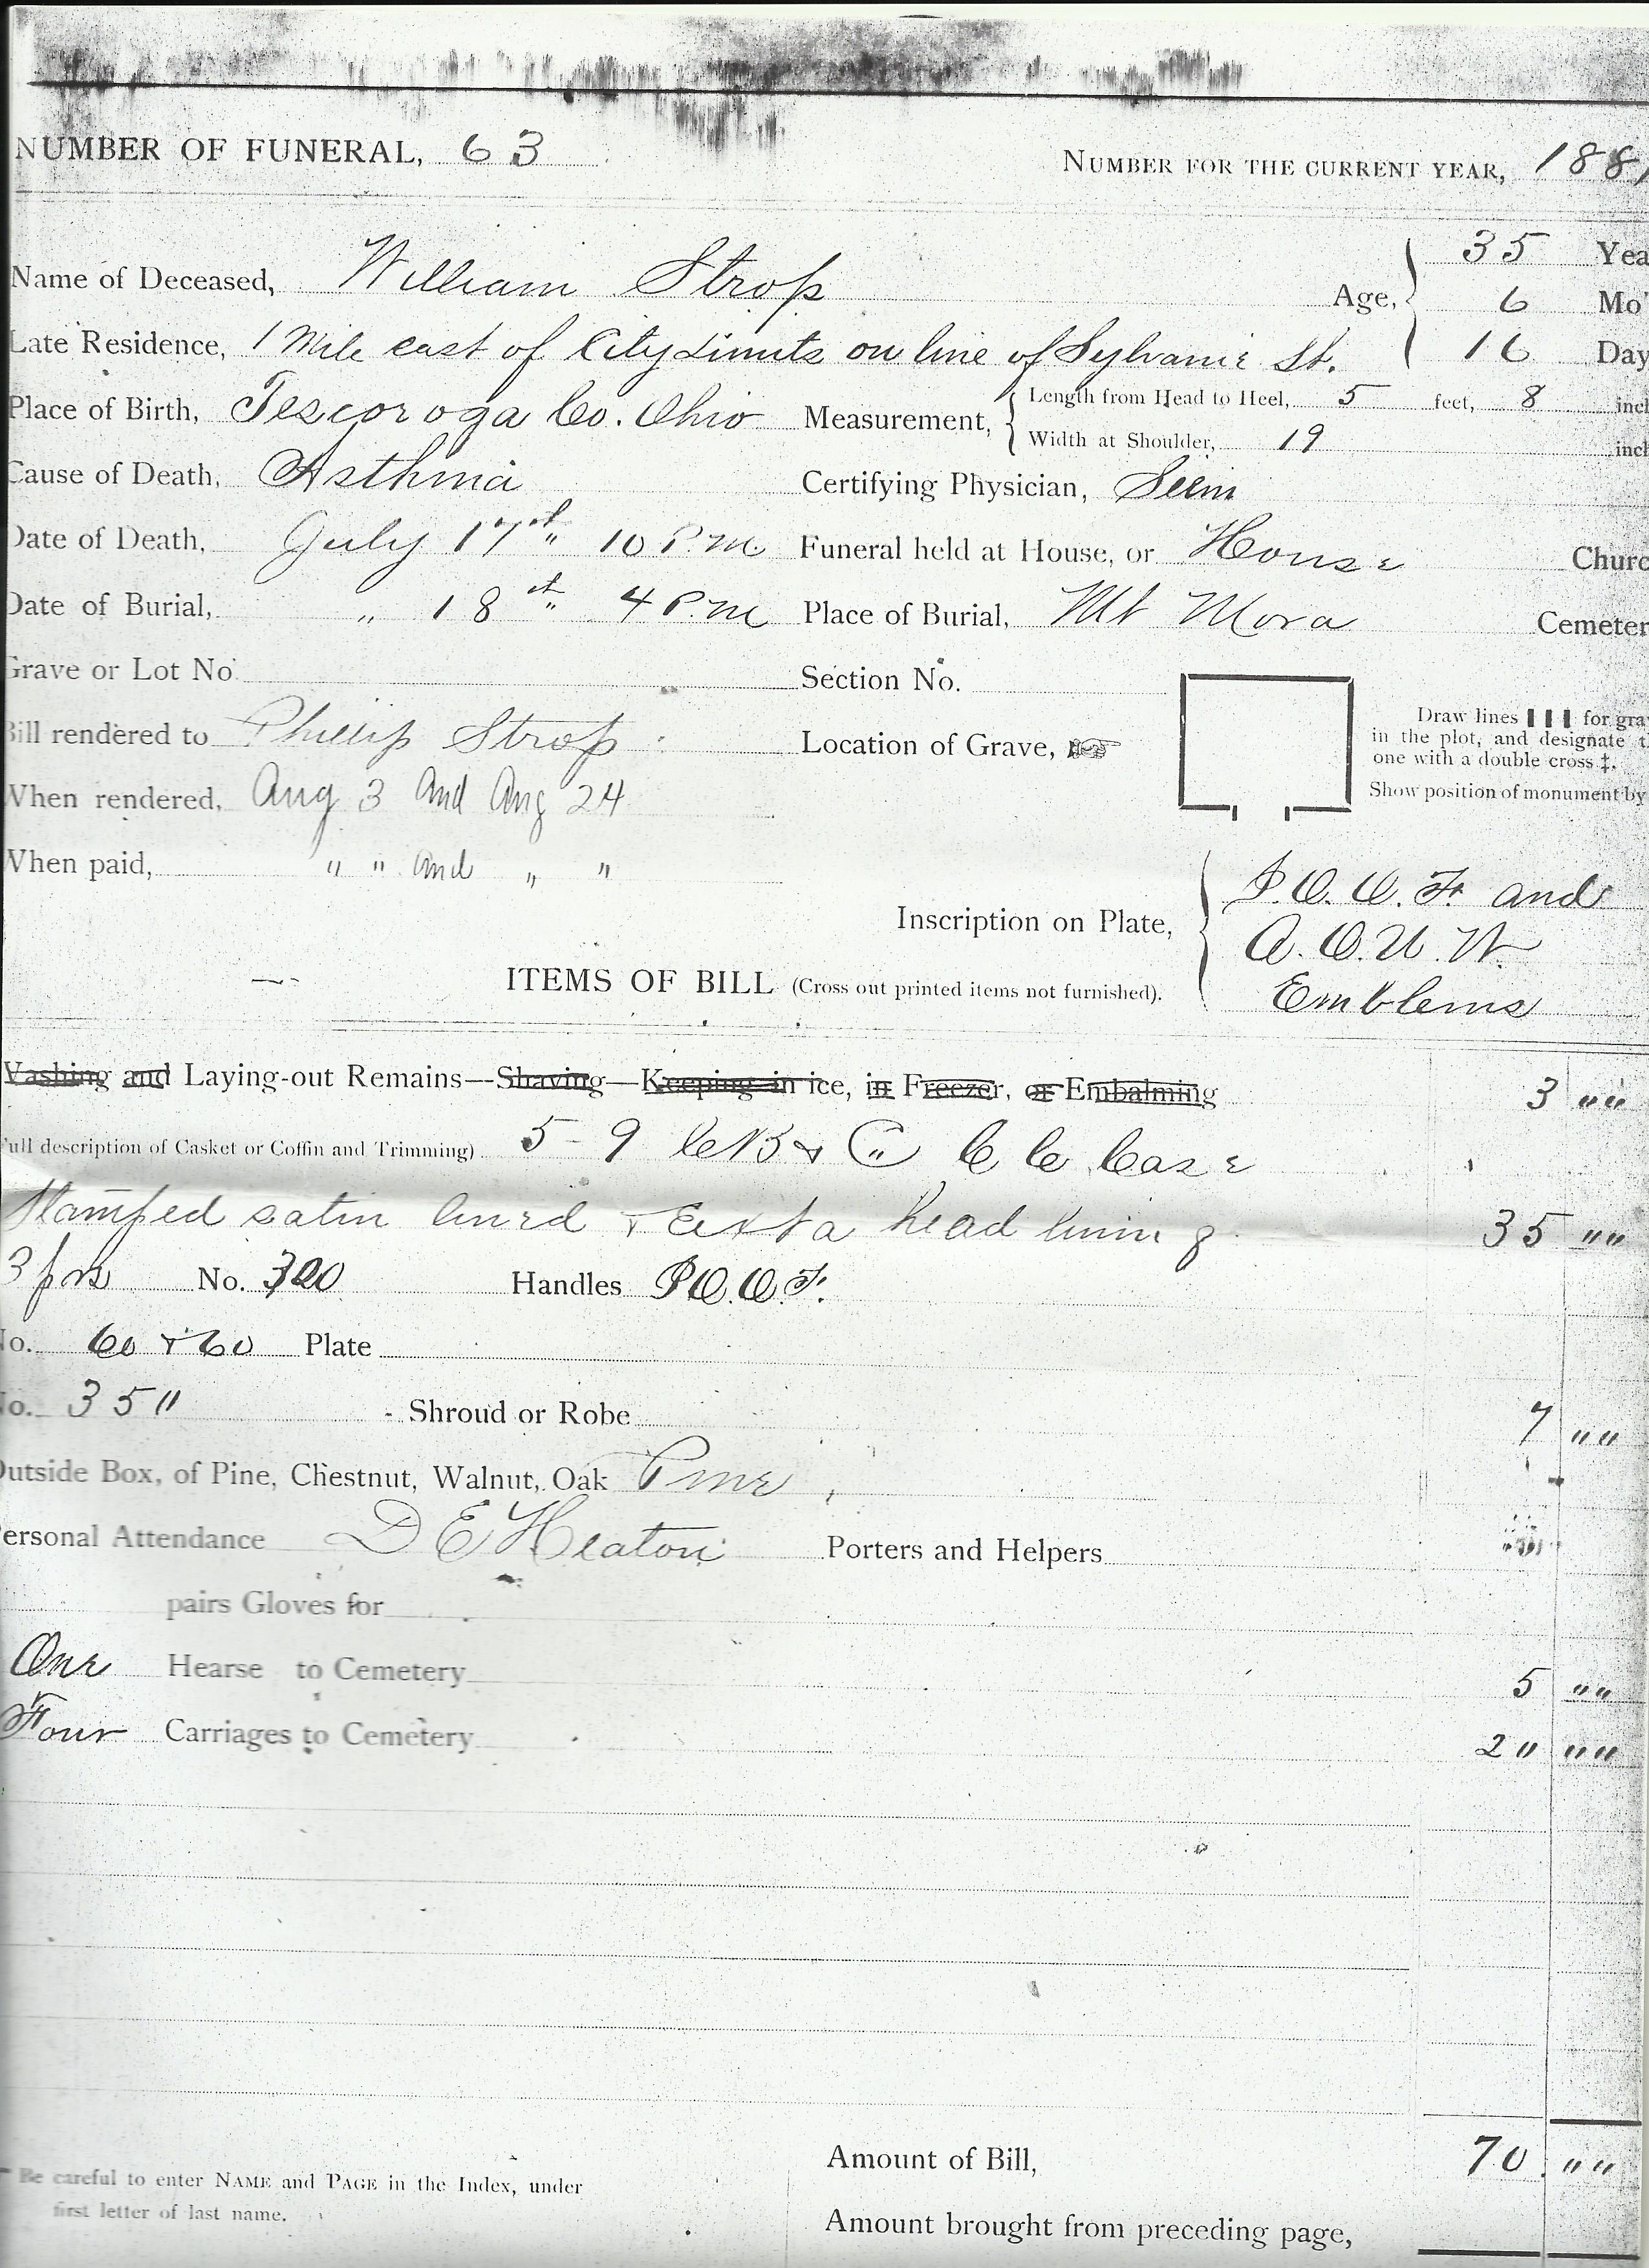 NUMBER OF FUNERAL, 63
NUMBER FOR THE CURRENT YEAR, 188
Name of Deceased, William Strop
Age, 35 Yea
6 Mo'
16 Day
Late Residence, 1 Mile east of City Limits on line of Sylvanie St.
Place of Birth, Tescoroga Co. Ohio
Measurement, Length from Head to Heel, 5 feet, 8 incl
Width at Shoulder, 19 incl
Cause of Death, Asthma
Certifying Physician,
Date of Death, July 17th 10 P.M.
Funeral held at House, or House Churc
Date of Burial, " 18th 4 P.M
Place of Burial, Mt Mora Cemeter
Grave or Lot No.
Section No.
Bill rendered to Phillip Strop
Location of Grave,
Draw lines ▌▌▌ for gra
in the plot, and designate t
one with a double cross ‡.
Show position of monument by
When rendered, Aug 3 and Aug 24
When paid, " " and " "
Inscription on Plate, I.O.O.F. and
A.O.U.W.
Emblems
ITEMS OF BILL (Cross out printed items not furnished).
Washing and Laying-out Remains—Shaving—Keeping in ice, in Freezer, or Embalming 3 ""
Full description of Casket or Coffin and Trimming) 5-9 Case
Stamped satin lined & Exta head lining 35 ""
3 prs No. 320 Handles I.O.O.F.
No. 60 & 60 Plate
No. 35" - Shroud or Robe 7 ""
Outside Box, of Pine, Chestnut, Walnut, Oak Pine
Personal Attendance D E Heaton Porters and Helpers
pairs Gloves for
One Hearse to Cemetery 5 ""
Four Carriages to Cemetery 2" ""
Amount of Bill, 70 ""
Be careful to enter NAME and PAGE in the Index, under
first letter of last name.
Amount brought from preceding page,